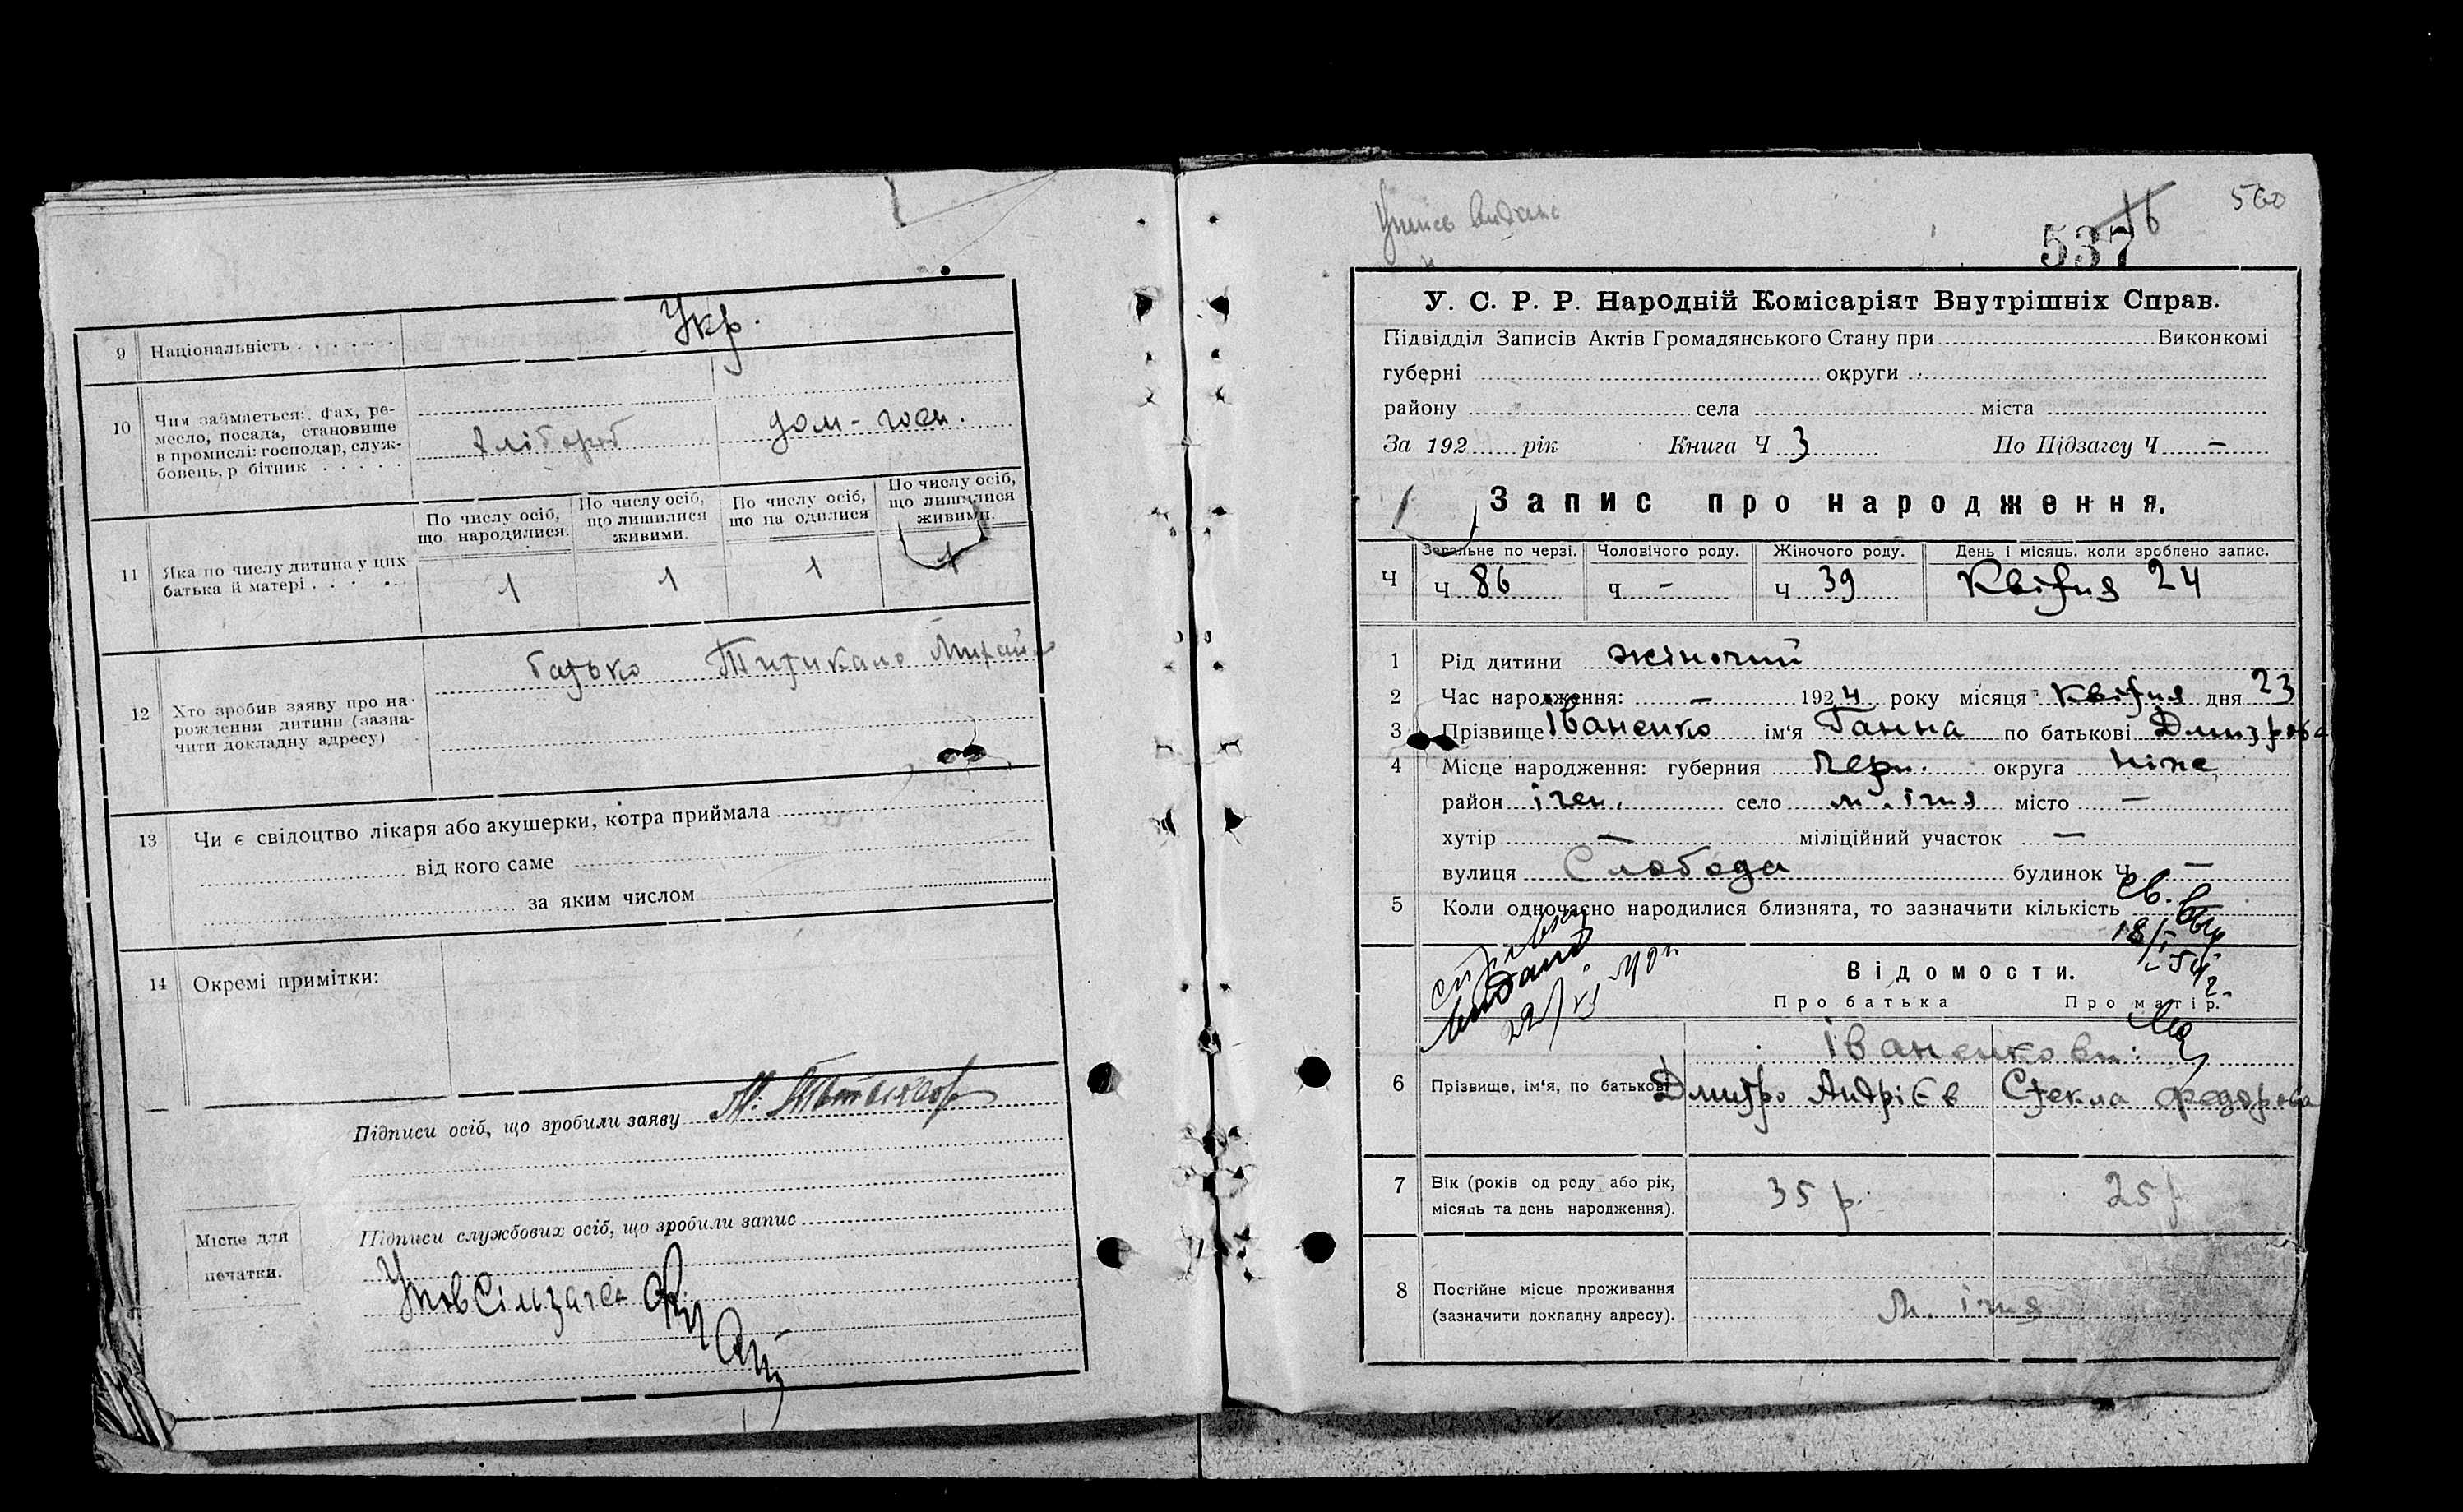 9 Національність . . . . . . Укр.
10 Чим займається: фах, ре-
месло, посада, становище
в промислі: господар, служ-
бовець, р бітник . . . . .
хлібороб
дом-госп.
11 Яка по числу дитина у цих
батька й матері . . . .
По числу осіб,
що народилися.
По числу осіб,
що лишилися
живими.
По числу осіб,
що на одилися
По числу осіб,
що лишилися
живими.
1 1 1 1
12 Хто зробив заяву про на-
рождення дитини (зазна-
чити докладну адресу)
батько
13 Чи є свідоцтво лікаря або акушерки, котра приймала
від кого саме
за яким числом
14 Окремі примітки:
Підписи осіб, що зробили заяву
Підписи службових осіб, що зробили запис
Місце для
печатки.
560
16
537
У. С. Р. Р. Народній Комісаріят Внутрішніх Справ.
Підвідділ Записів Актів Громадянського Стану при Виконкомі
губерні округи
району села міста
За 192 рік Книга Ч 3 По Підзагсу Ч —
Запис про народження.
Ч
Загальне по черзі. Чоловічого роду. Жіночого роду. День і місяць, коли зроблено запис.
Ч 86 Ч — Ч 39 Квітня 24
1 Рід дитини жіночий
2 Час народження: — 1924 року місяця Квітня дня 23
3 Прізвище Іваненко ім'я Ганна по батькові Дмитрова
4 Місце народження: губерния Черн. округа Ніже
район ічен. село м. ічня місто —
хутір — міліційний участок —
вулиця Слобода будинок Ч —
5 Коли одночасно народилися близнята, то зазначити кількість
18/I-54 г.
видано
Відомости.
Про батька Про матір.
Іваненкови:
6 Прізвище, ім'я, по батькові Дмитро Андрієв Стекла Федорова
7 Вік (років од роду або рік,
місяць та день народження).
35 р. 25 р
8 Постійне місце проживання
(зазначити докладну адресу).
м. ічня